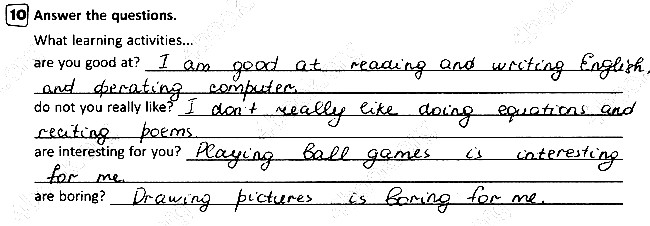 10 Answer the questions.
What learning activities...
are you good at? I am good at reading and writing English,
and operating computer.
do not you really like? I don't really like doing equations and
reciting poems.
are interesting for you? Playing ball games is interesting
for me.
are boring? Drawing pictures is boring for me.